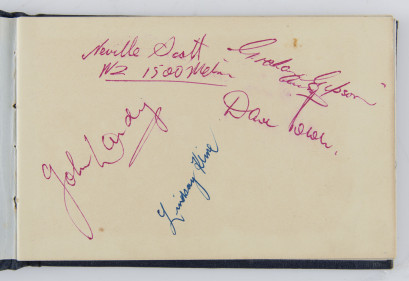 Neville Scott
NZ 1500 Metres
Graham Gipson
Dave
John Landy
Lindsay Hime